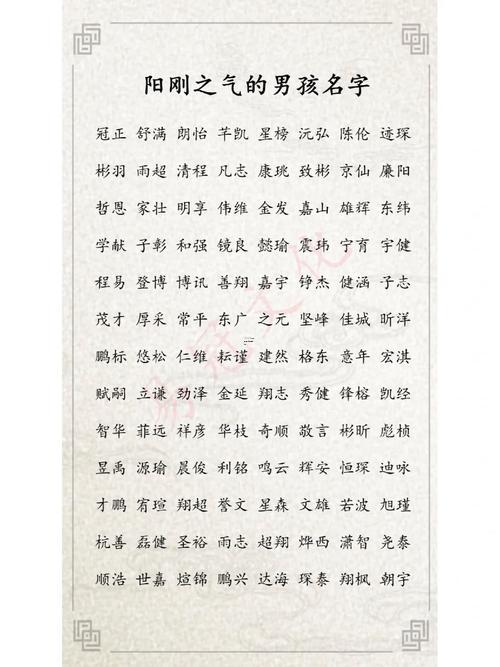 阳刚之气的男孩名字
冠正 舒满 朗怡 芊凯 星榜 沅弘 陈伦 迹琛
彬羽 雨超 清程 凡志 康珧 致彬 京仙 廉阳
哲恩 家壮 明享 伟维 金发 嘉山 雄辉 东纬
学献 子彰 和强 镜良 懿瑜 震玮 宁育 宇健
程易 登博 博讯 善翔 嘉宇 铮杰 健涵 子志
茂才 厚采 常平 东广 之元 坚峰 佳城 昕洋
鹏标 悠松 仁维 耘谨 建然 格东 意年 宏淇
赋嗣 立谦 劲泽 金延 翔志 秀健 锋榕 凯经
智华 菲远 祥彦 华枝 奇顺 敬言 彬昕 彪桢
昱禹 源瑜 晨俊 利铭 鸣云 辉安 恒琛 迪咏
才鹏 宥瑄 翔超 誉文 星森 文雄 若波 旭瑾
杭善 磊健 圣裕 雨志 超翔 烨西 潇智 尧泰
顺浩 世嘉 煊锦 鹏兴 达海 琛泰 翔枫 朝宇